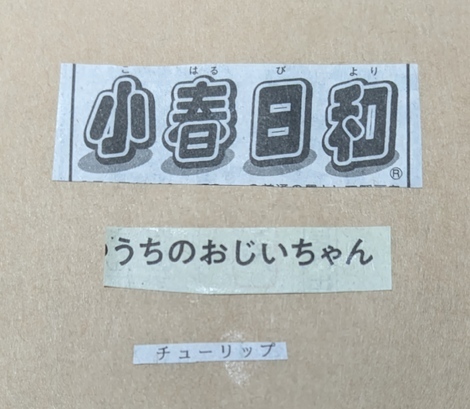 こ はる び より
小春日和®
うちのおじいちゃん
チューリップ